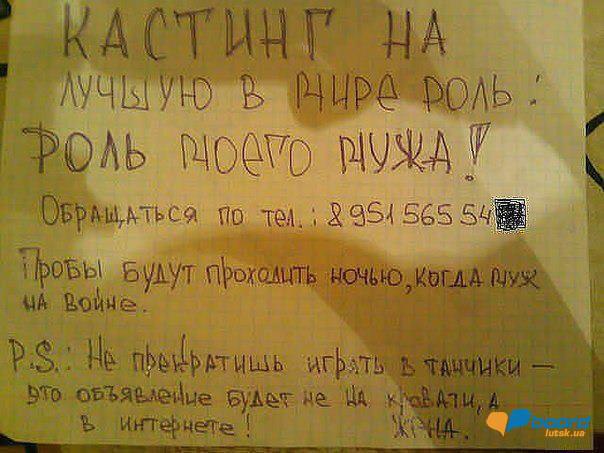 КАСТИНГ НА
ЛУЧШУЮ В МИРЕ РОЛЬ:
РОЛЬ МОЕГО МУЖА!
ОБРАЩАТЬСЯ ПО ТЕЛ.: 8 951 565 54
ПРОБЫ БУДУТ ПРОХОДИТЬ НОЧЬЮ, КОГДА МУЖ
НА ВОЙНЕ.
P.S.: НЕ ПРЕКРАТИШЬ ИГРАТЬ В ТАНЧИКИ —
ЭТО ОБЪЯВЛЕНИЕ БУДЕТ НЕ НА КРОВАТИ, А
В ИНТЕРНЕТЕ! ЖЕНА.
board
lutsk.ua